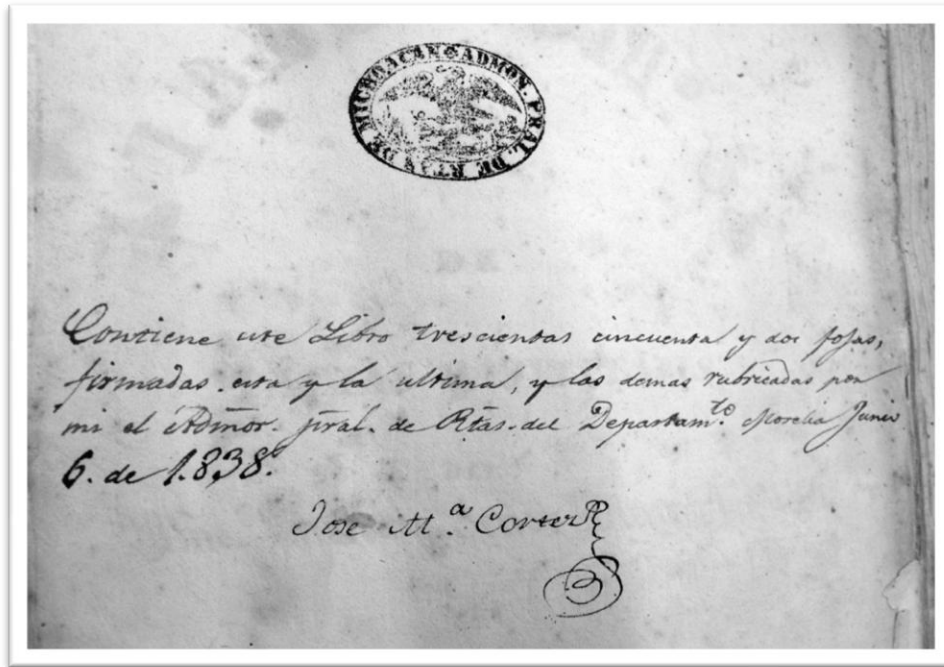 ADMON. PRAL. DE RTAS. DE MICHOACAN
Contiene este Libro trescientas cincuenta y dos fojas,
firmadas esta y la ultima, y las demas rubricadas por
mi el Admor. pral. de Rtas. del Departam.to Morelia Junio
6. de 1.838.
Jose M.a Cortes